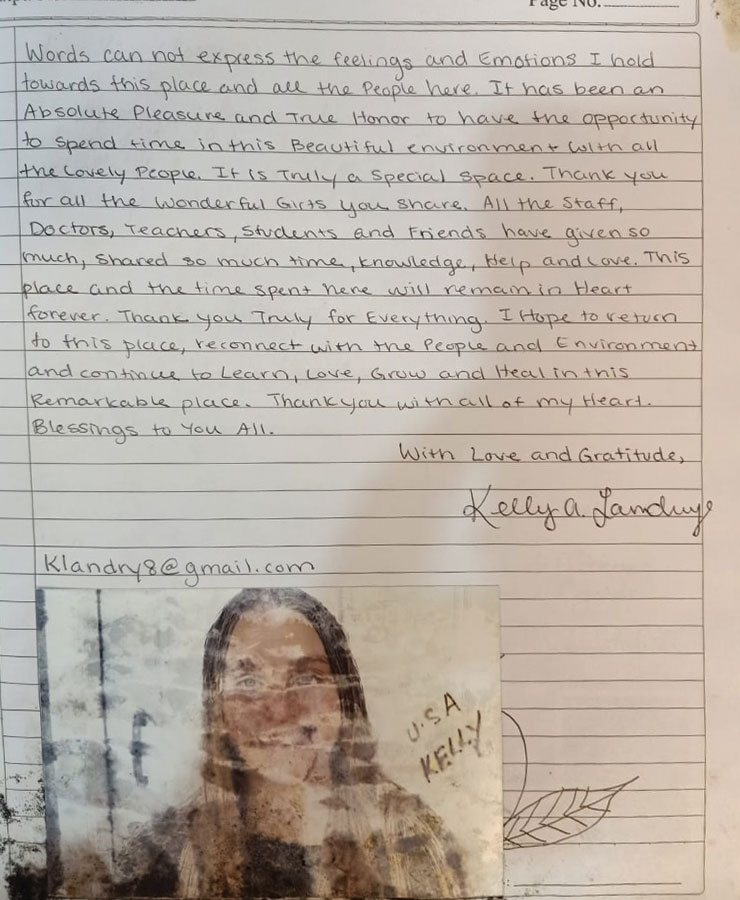 Page No.
Words can not express the feelings and Emotions I hold
towards this place and all the People here. It has been an
Absolute Pleasure and True Honor to have the opportunity
to spend time in this Beautiful environment with all
the Lovely People. It is Truly a Special space. Thank you
for all the Wonderful Gifts you share. All the Staff,
Doctors, Teachers, Students and Friends have given so
much, shared so much time, knowledge, Help and Love. This
place and the time spent here will remain in Heart
forever. Thank you Truly for Everything. I Hope to return
to this place, reconnect with the People and Environment
and continue to Learn, Love, Grow and Heal in this
Remarkable place. Thank you with all of my Heart.
Blessings to You All.
With Love and Gratitude,
Kelly A.
Klandry8@gmail.com
U.S.A
KELLY